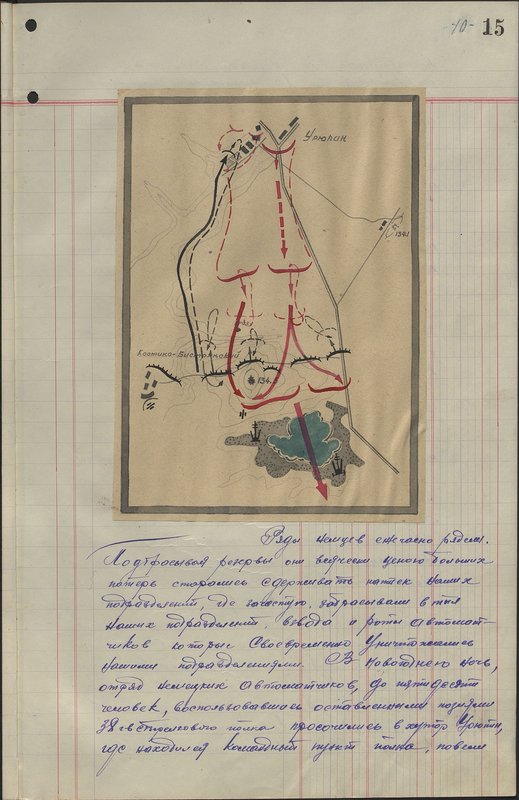 -10- 15
Урюпин
134.1
Костино-Быстрянский
134.5
Ряды немцев ежечасно редели.
Подбрасывая резервы они всячески ценою больших
потерь старались сдерживать натиск наших
подразделений, где зачастую, забрасывали в тыл
наших подразделений, взвода и роты автомат-
чиков которые своевременно уничтожались
нашими подразделениями. В новогоднею ночь,
отряд немецких автоматчиков, до пятидесяти
человек, воспользовавшись оставленными позициями
38 гв стрелкового полка просочились в хутор Урюпин,
где находился командный пункт полка, повели